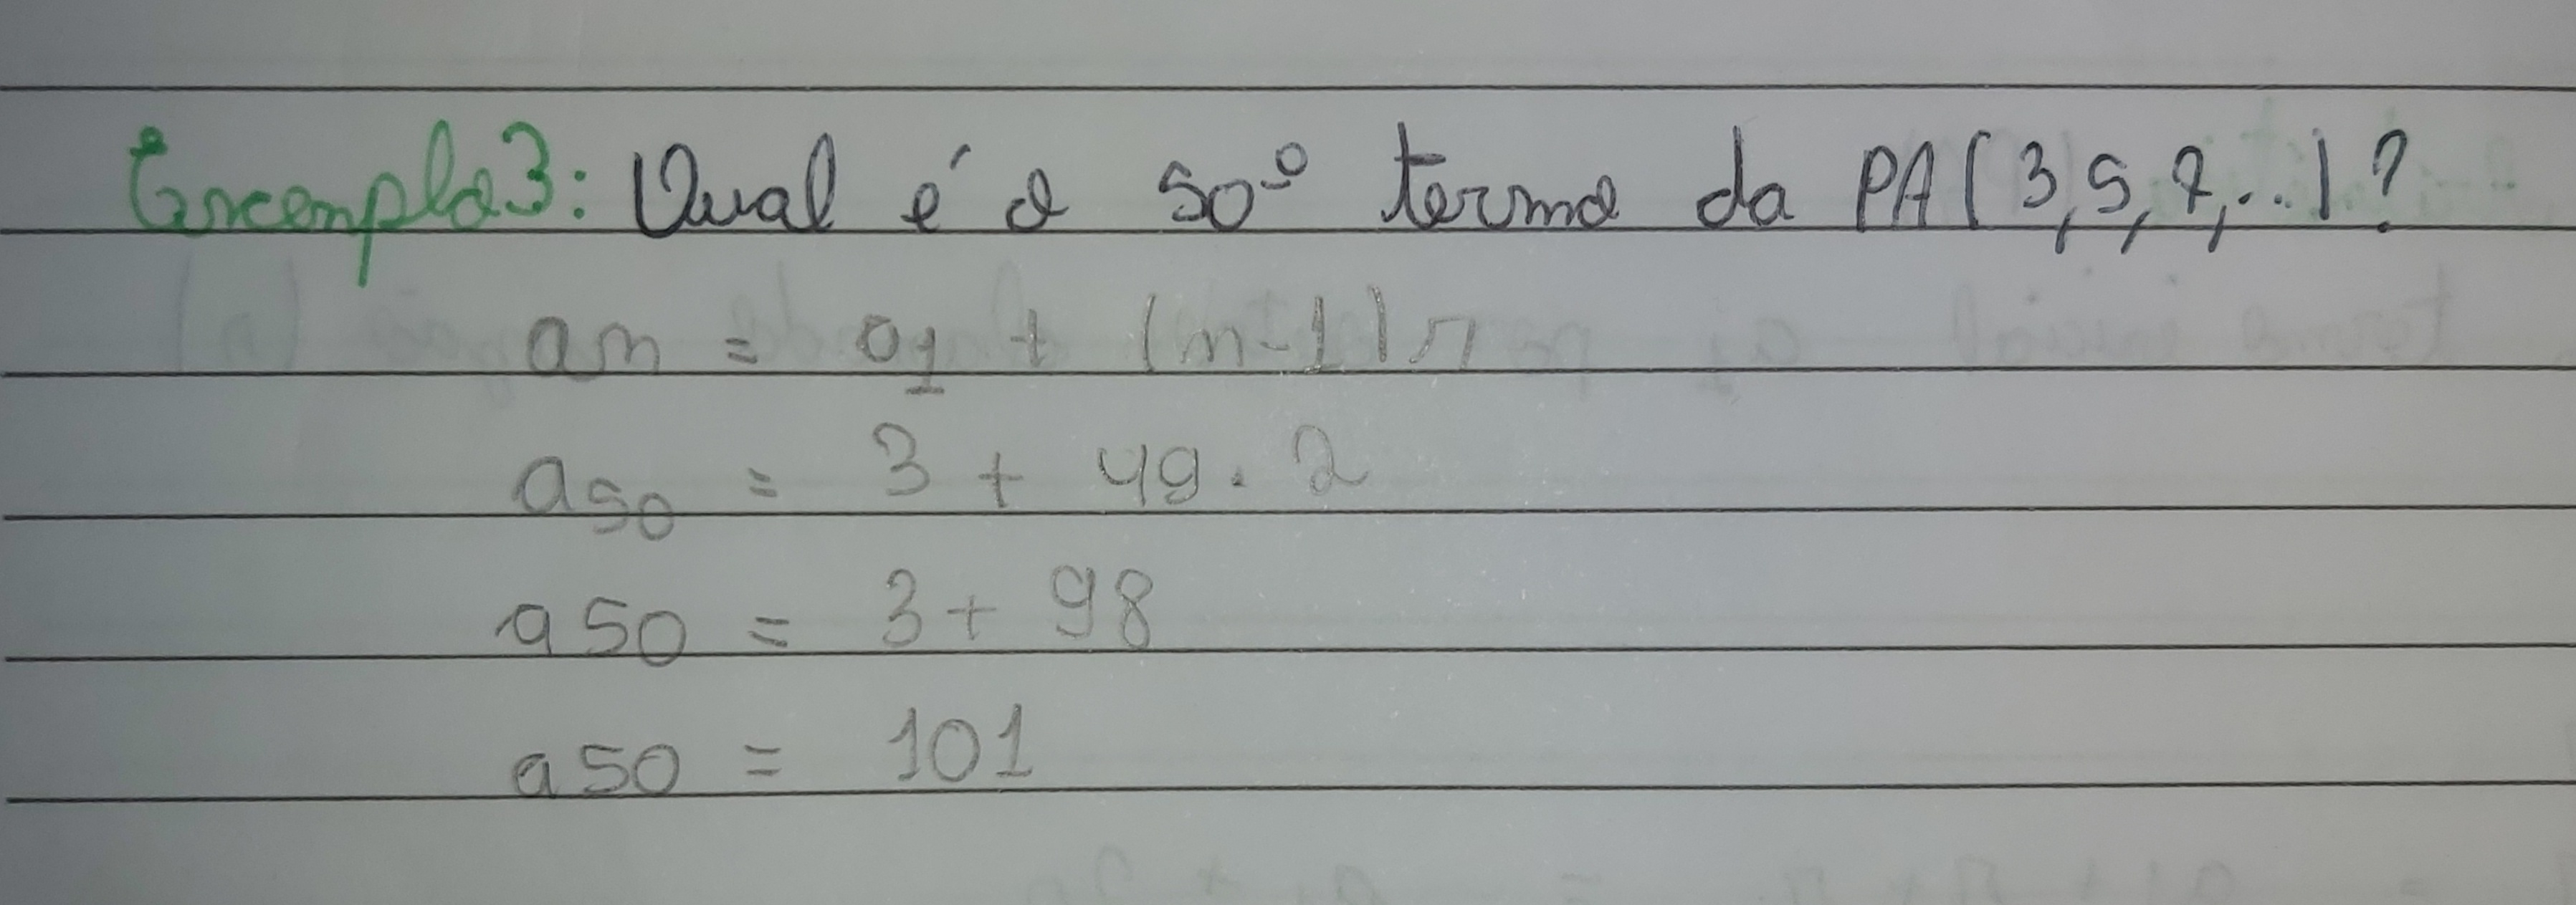 Exemplo 3: Qual é o 50º termo da PA (3, 5, 7, ...)?
an = a1 + (n-1) r
a50 = 3 + 49 . 2
a50 = 3 + 98
a50 = 101